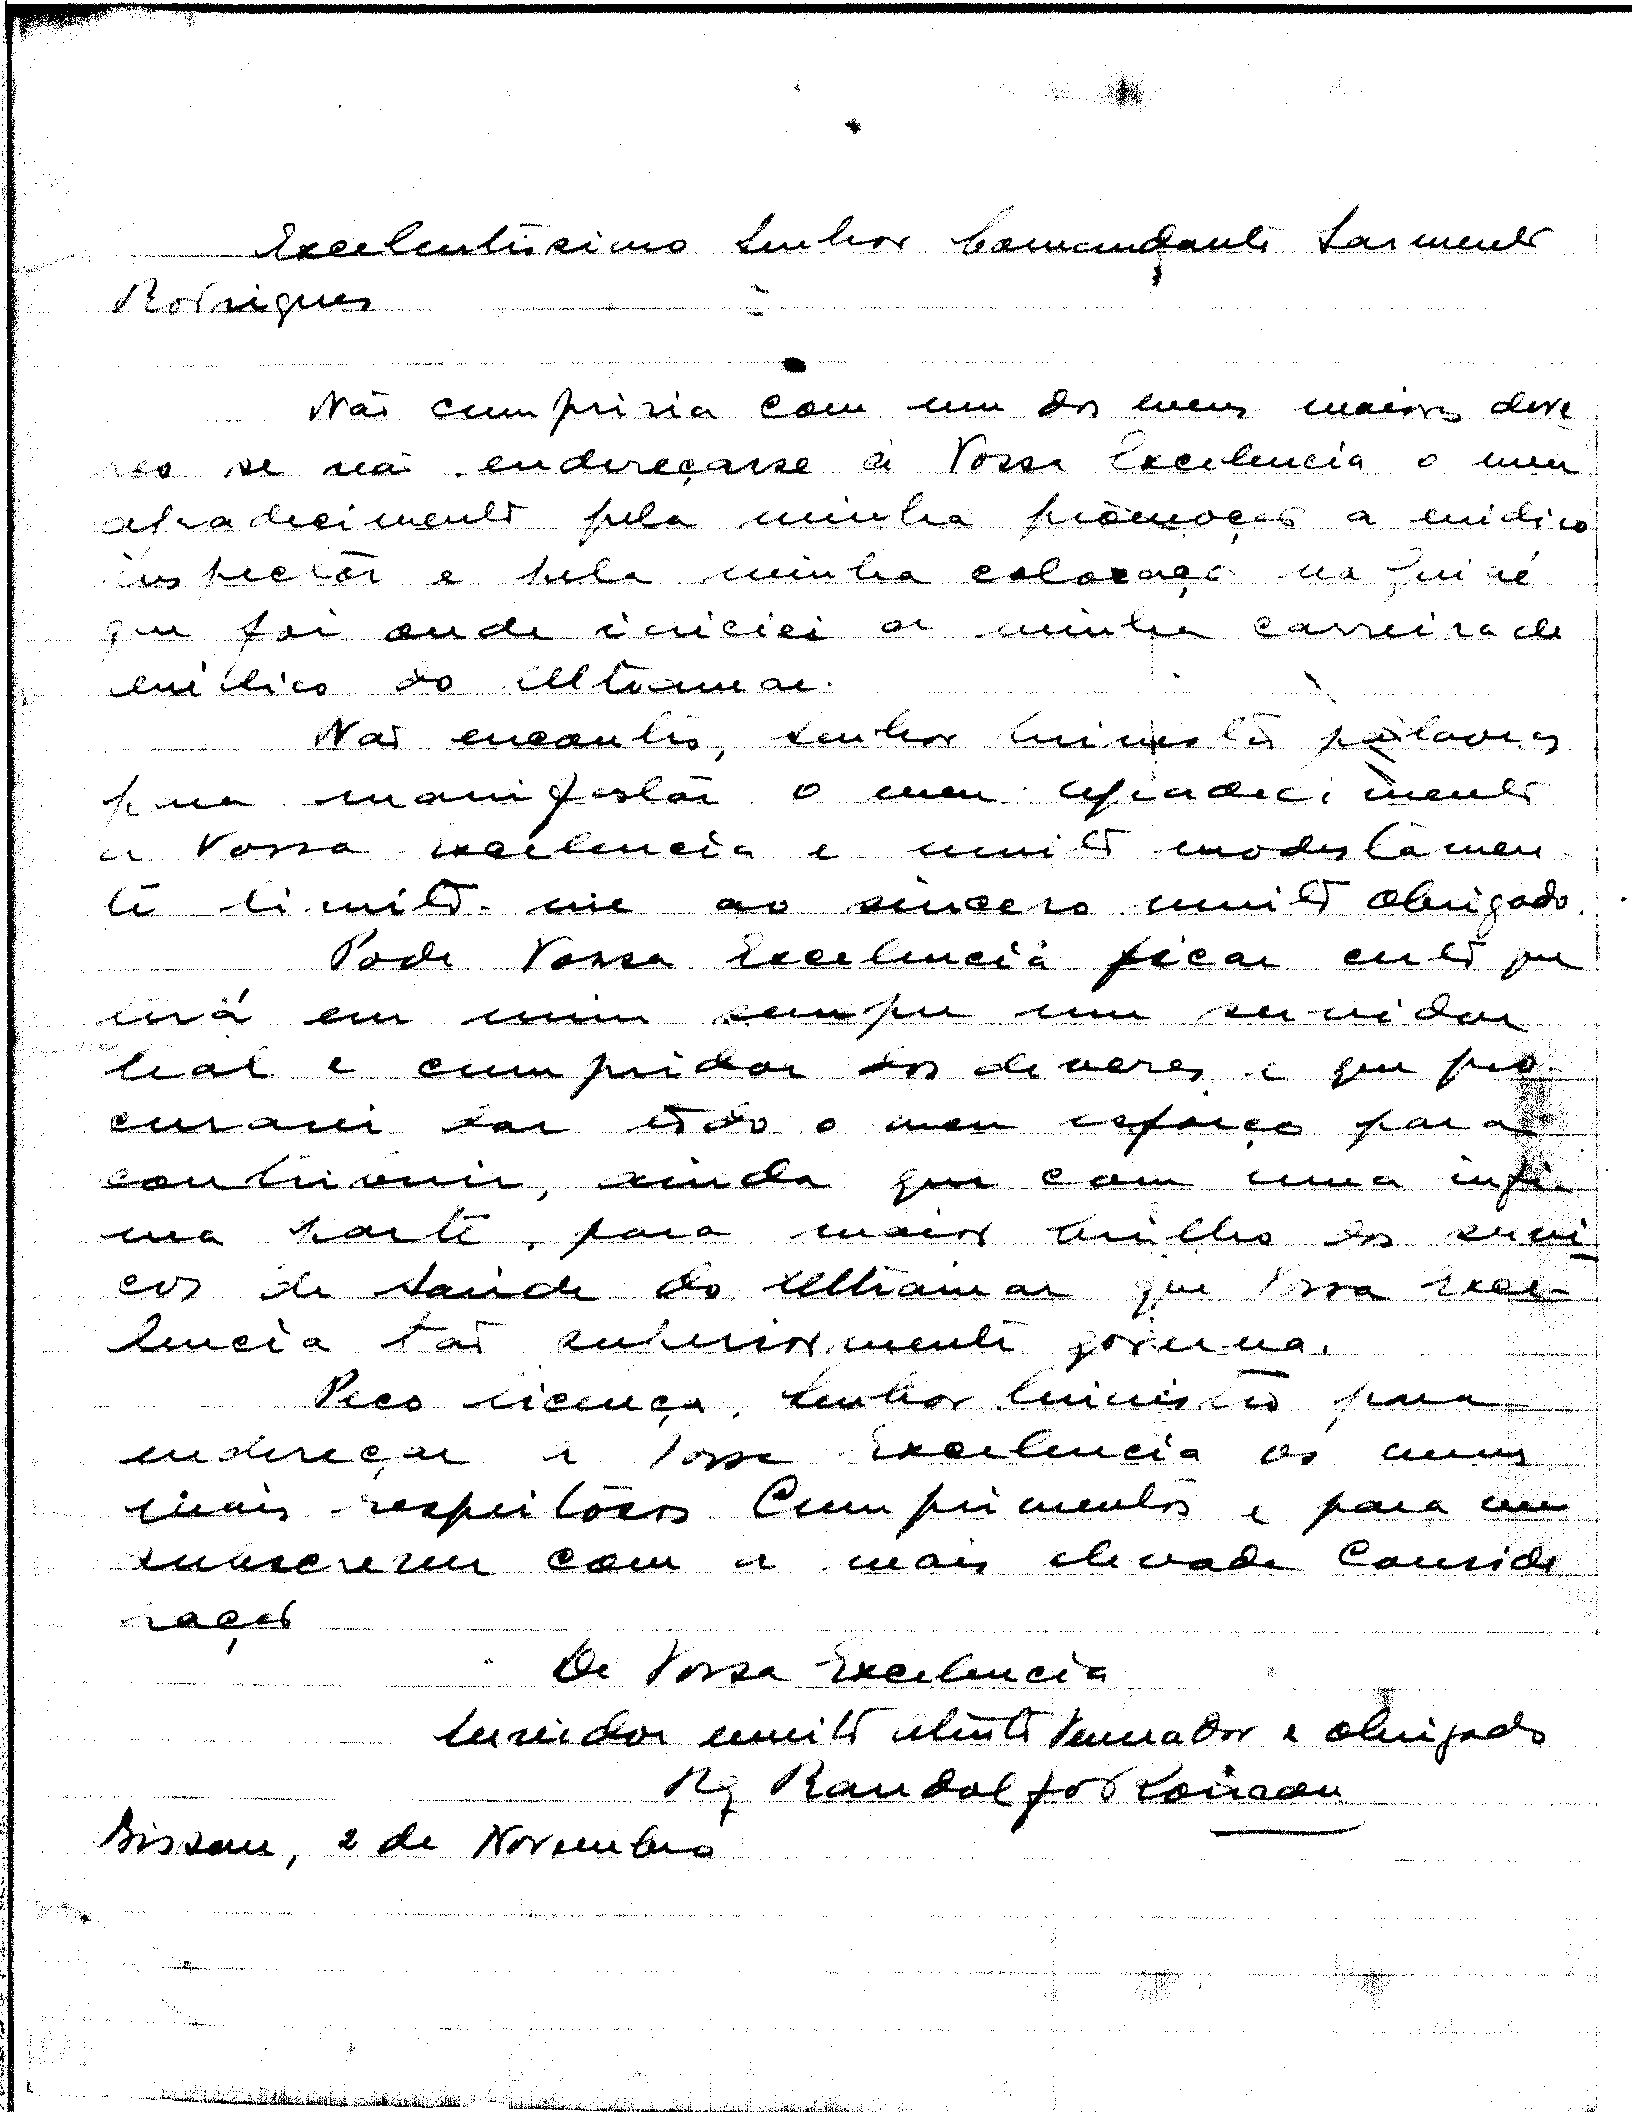 Excelentissimo Senhor Comandante Sarmento
Rodrigues
Não cumpriria com um dos meus maiores deve
res se não endereçasse a Vossa Excelencia o meu
agradecimento pela minha promoção a médico
inspector e pela minha colocação na Guiné
que foi onde iniciei a minha carreira de
médico do Ultramar.
Não encontro, Senhor Ministro palavras
para manifestar o meu agradecimento
a Vossa excelencia e muito modestamen
te limito-me ao sincero muito obrigado.
Pode Vossa Excelencia ficar certo que
terá em mim sempre um servidor
leal e cumpridor dos deveres e que pro
curarei dar todo o meu esforço para
contribuir, ainda que com uma infi
ma parte, para maior brilho dos servi
cos de Saúde do Ultramar que Vossa Exce
lencia tão superiormente governa.
Peço licença, Senhor Ministro para
endereçar a Vossa Excelencia os meus
mais respeitosos Cumprimentos e para me
subscrever com a mais elevada Conside
ração
De Vossa Excelencia
Servidor muito atento Venerador e obrigado
Randolfo
Bissau, 2 de Novembro